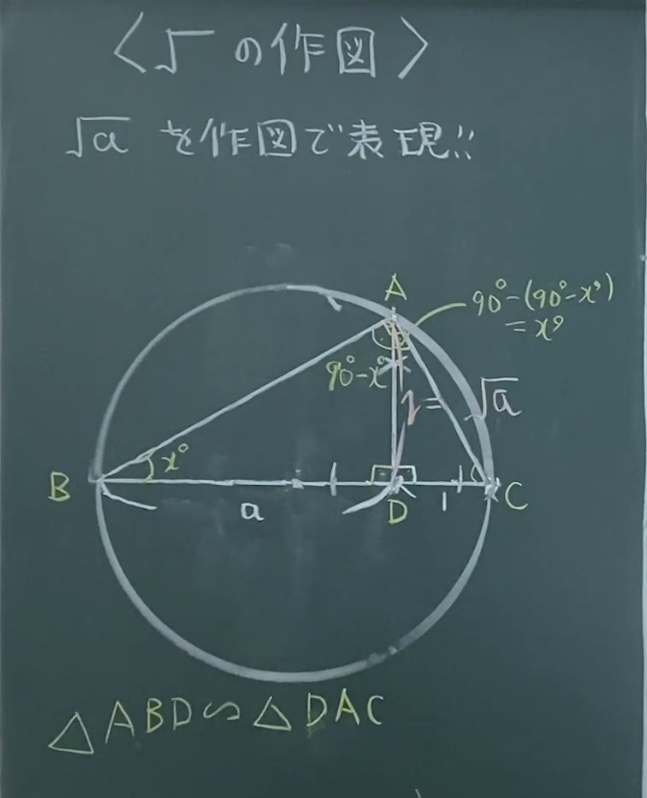 〈√の作図〉
√a を作図で表現!!
A
90°-(90°-x°)
=x°
90°-x°
= √a
x°
B
a
D
1
C
△ABD∽△DAC